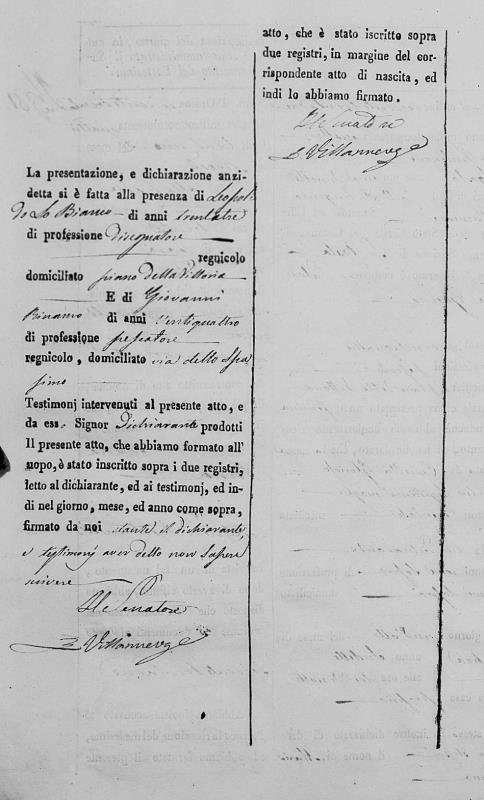 La presentazione, e dichiarazione anzi-
detta si è fatta alla presenza di Leopol
do Lo Bianco di anni trentatre
di professione Disegnatore
regnicolo
domiciliato piano della Vittoria
E di Giovanni
di anni ventiquattro
di professione pescatore
regnicolo, domiciliato via dello Spa
simo
Testimonj intervenuti al presente atto, e
da esso Signor Dichiarante prodotti
Il presente atto, che abbiamo formato all'
uopo, è stato inscritto sopra i due registri,
letto al dichiarante, ed ai testimonj, ed in-
di nel giorno, mese, ed anno come sopra,
firmato da noi stante il dichiarante,
e testimonj aver detto non sapere
scrivere
Il Senatore
Villanneuge
atto, che è stato iscritto sopra
due registri, in margine del cor-
rispondente atto di nascita, ed
indi lo abbiamo firmato.
Il Senatore
Villanneuge